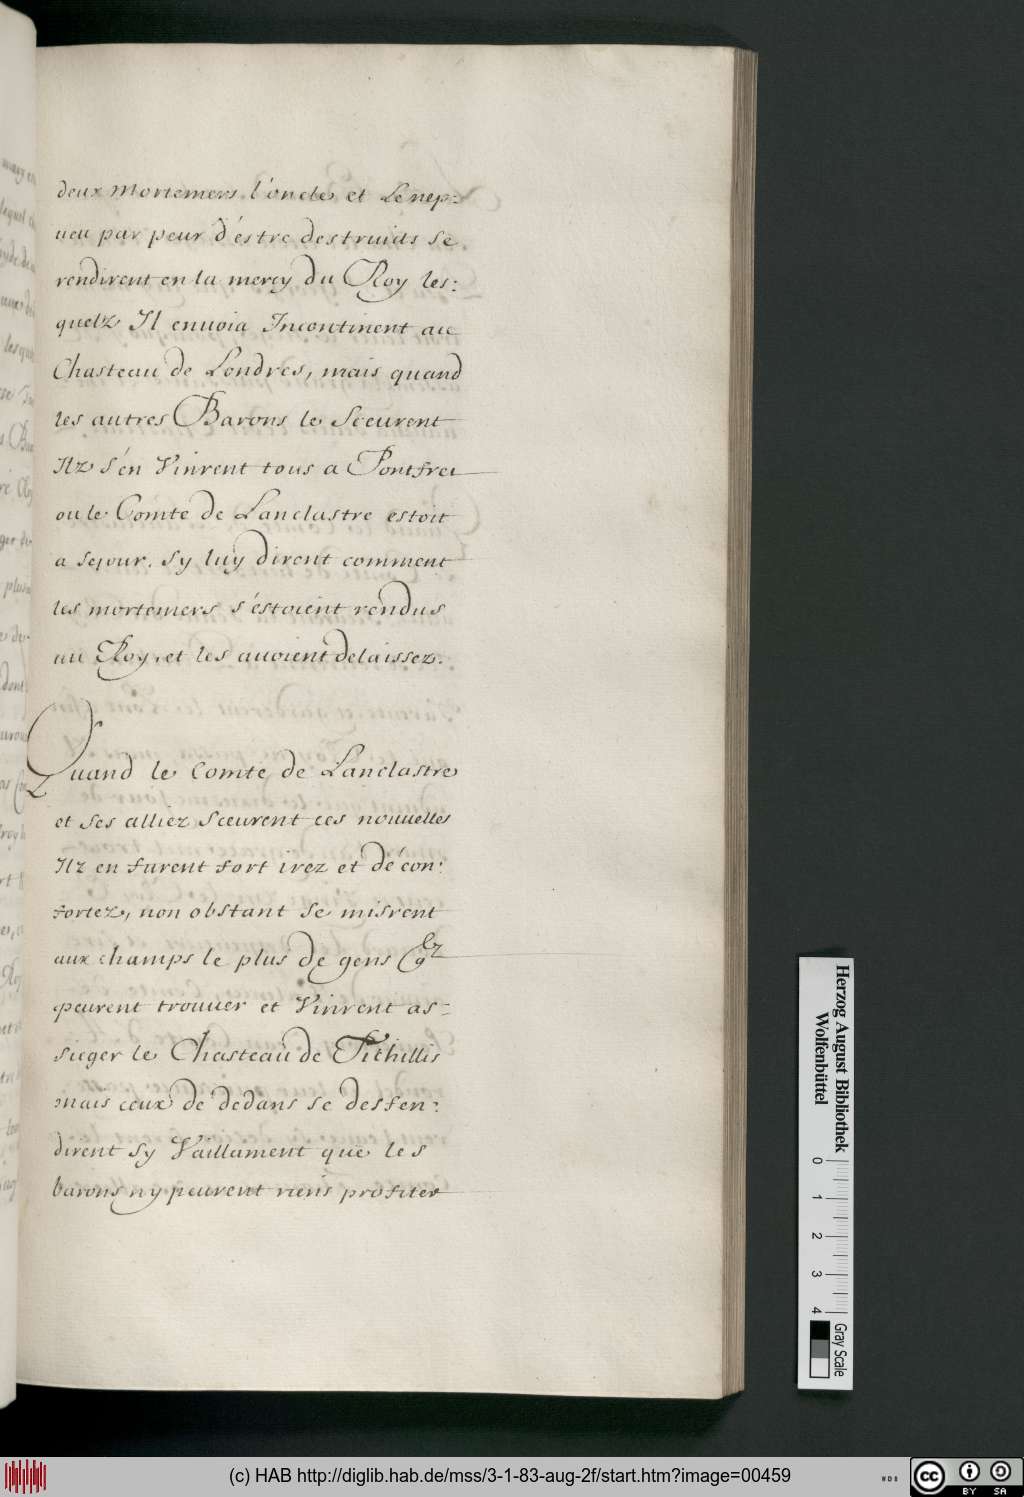 deux mortemers l'oncle et Le nep-
ueu par peur d'éstre destruicts se
rendirent en la mercy du Roy les:
quelz Il enuoia Incontinent au
Chasteau de Londres, mais quand
les autres Barons le Sceurent
Ilz s'én Vinrent tous a Pontfret
ou le Comte de Lanclastre estoit
a sejour. sy luy dirent comment
les mortemers s'éstoient rendus
au Roy, et les auoient delaissez.
Quand le Comte de Lanclastre
et ses alliez sceurent ces nouuelles
Ilz en furent fort irez et dé con:
fortez, non obstant se misrent
aux champs le plus de gens
peurent trouuer et Vinrent as-
sieger le Chasteau de Tithillis
mais ceux de dedans se deffen:
dirent sy Vaillament que les
barons n'y peurent riens profiter
Herzog August Bibliothek
Wolfenbüttel
0 1 2 3 4
Gray Scale
(c) HAB http://diglib.hab.de/mss/3-1-83-aug-2f/start.htm?image=00459
WDB
cc
BY SA